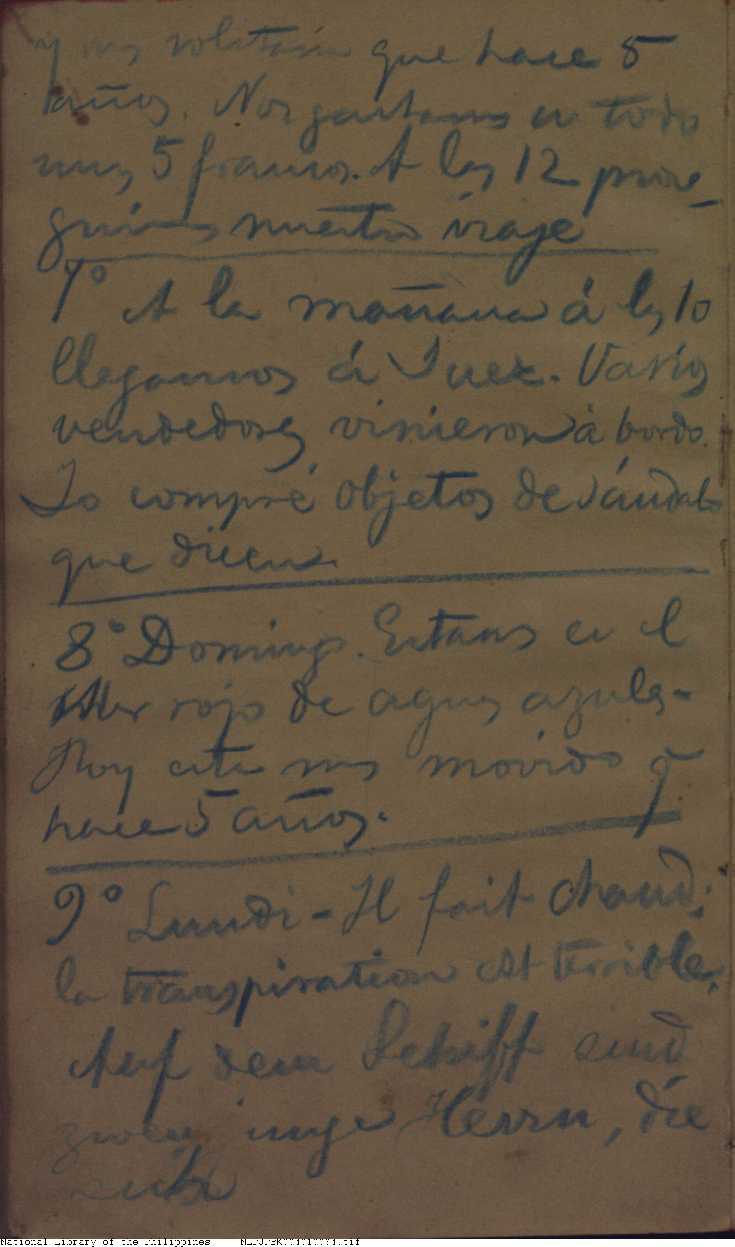 y mas solitario que hace 5
años. Nos gastamos en todo
unos 5 francos. A las 12 prose-
guimos nuestro viaje
7° A la mañana á las 10
llegamos á Suez. Varios
vendedores vinieron á bordo.
Yo compré objetos de sándalo
que dicen.
8° Domingo. Estamos en el
Mar rojo de aguas azules-
Hoy está mas movido q.
hace 5 años.
9° Lundi - Il fait chaud;
la transpiration est terrible.
Auf dem Schiff sind
zwei junge Herrn, die
National Library of the Philippines